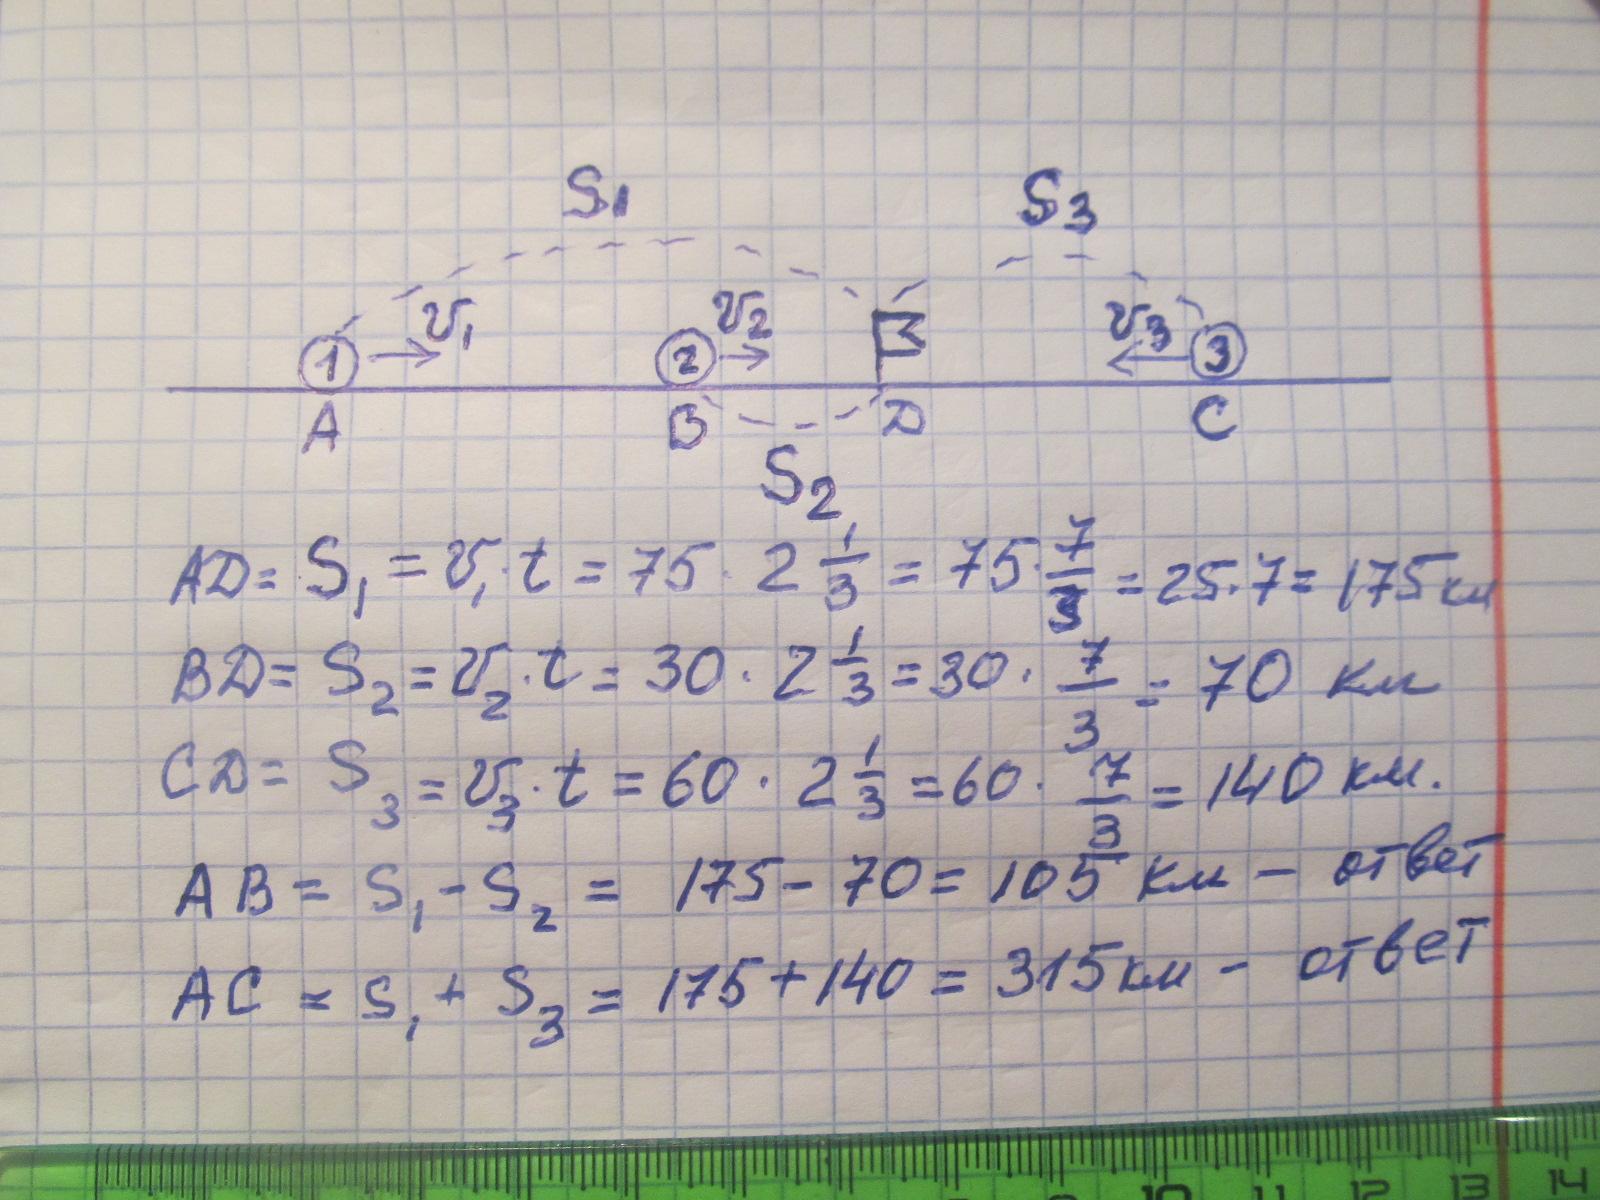 S₁ S₃
1 v₁ 2 v₂ v₃ 3
A B D C
S₂
AD = S₁ = v₁·t = 75·2 1/3 = 75·7/3 = 25·7 = 175 км
BD = S₂ = v₂·t = 30·2 1/3 = 30·7/3 = 70 км
CD = S₃ = v₃·t = 60·2 1/3 = 60·7/3 = 140 км.
AB = S₁ - S₂ = 175 - 70 = 105 км - ответ
AC = S₁ + S₃ = 175 + 140 = 315 км - ответ
10 11 12 13 14